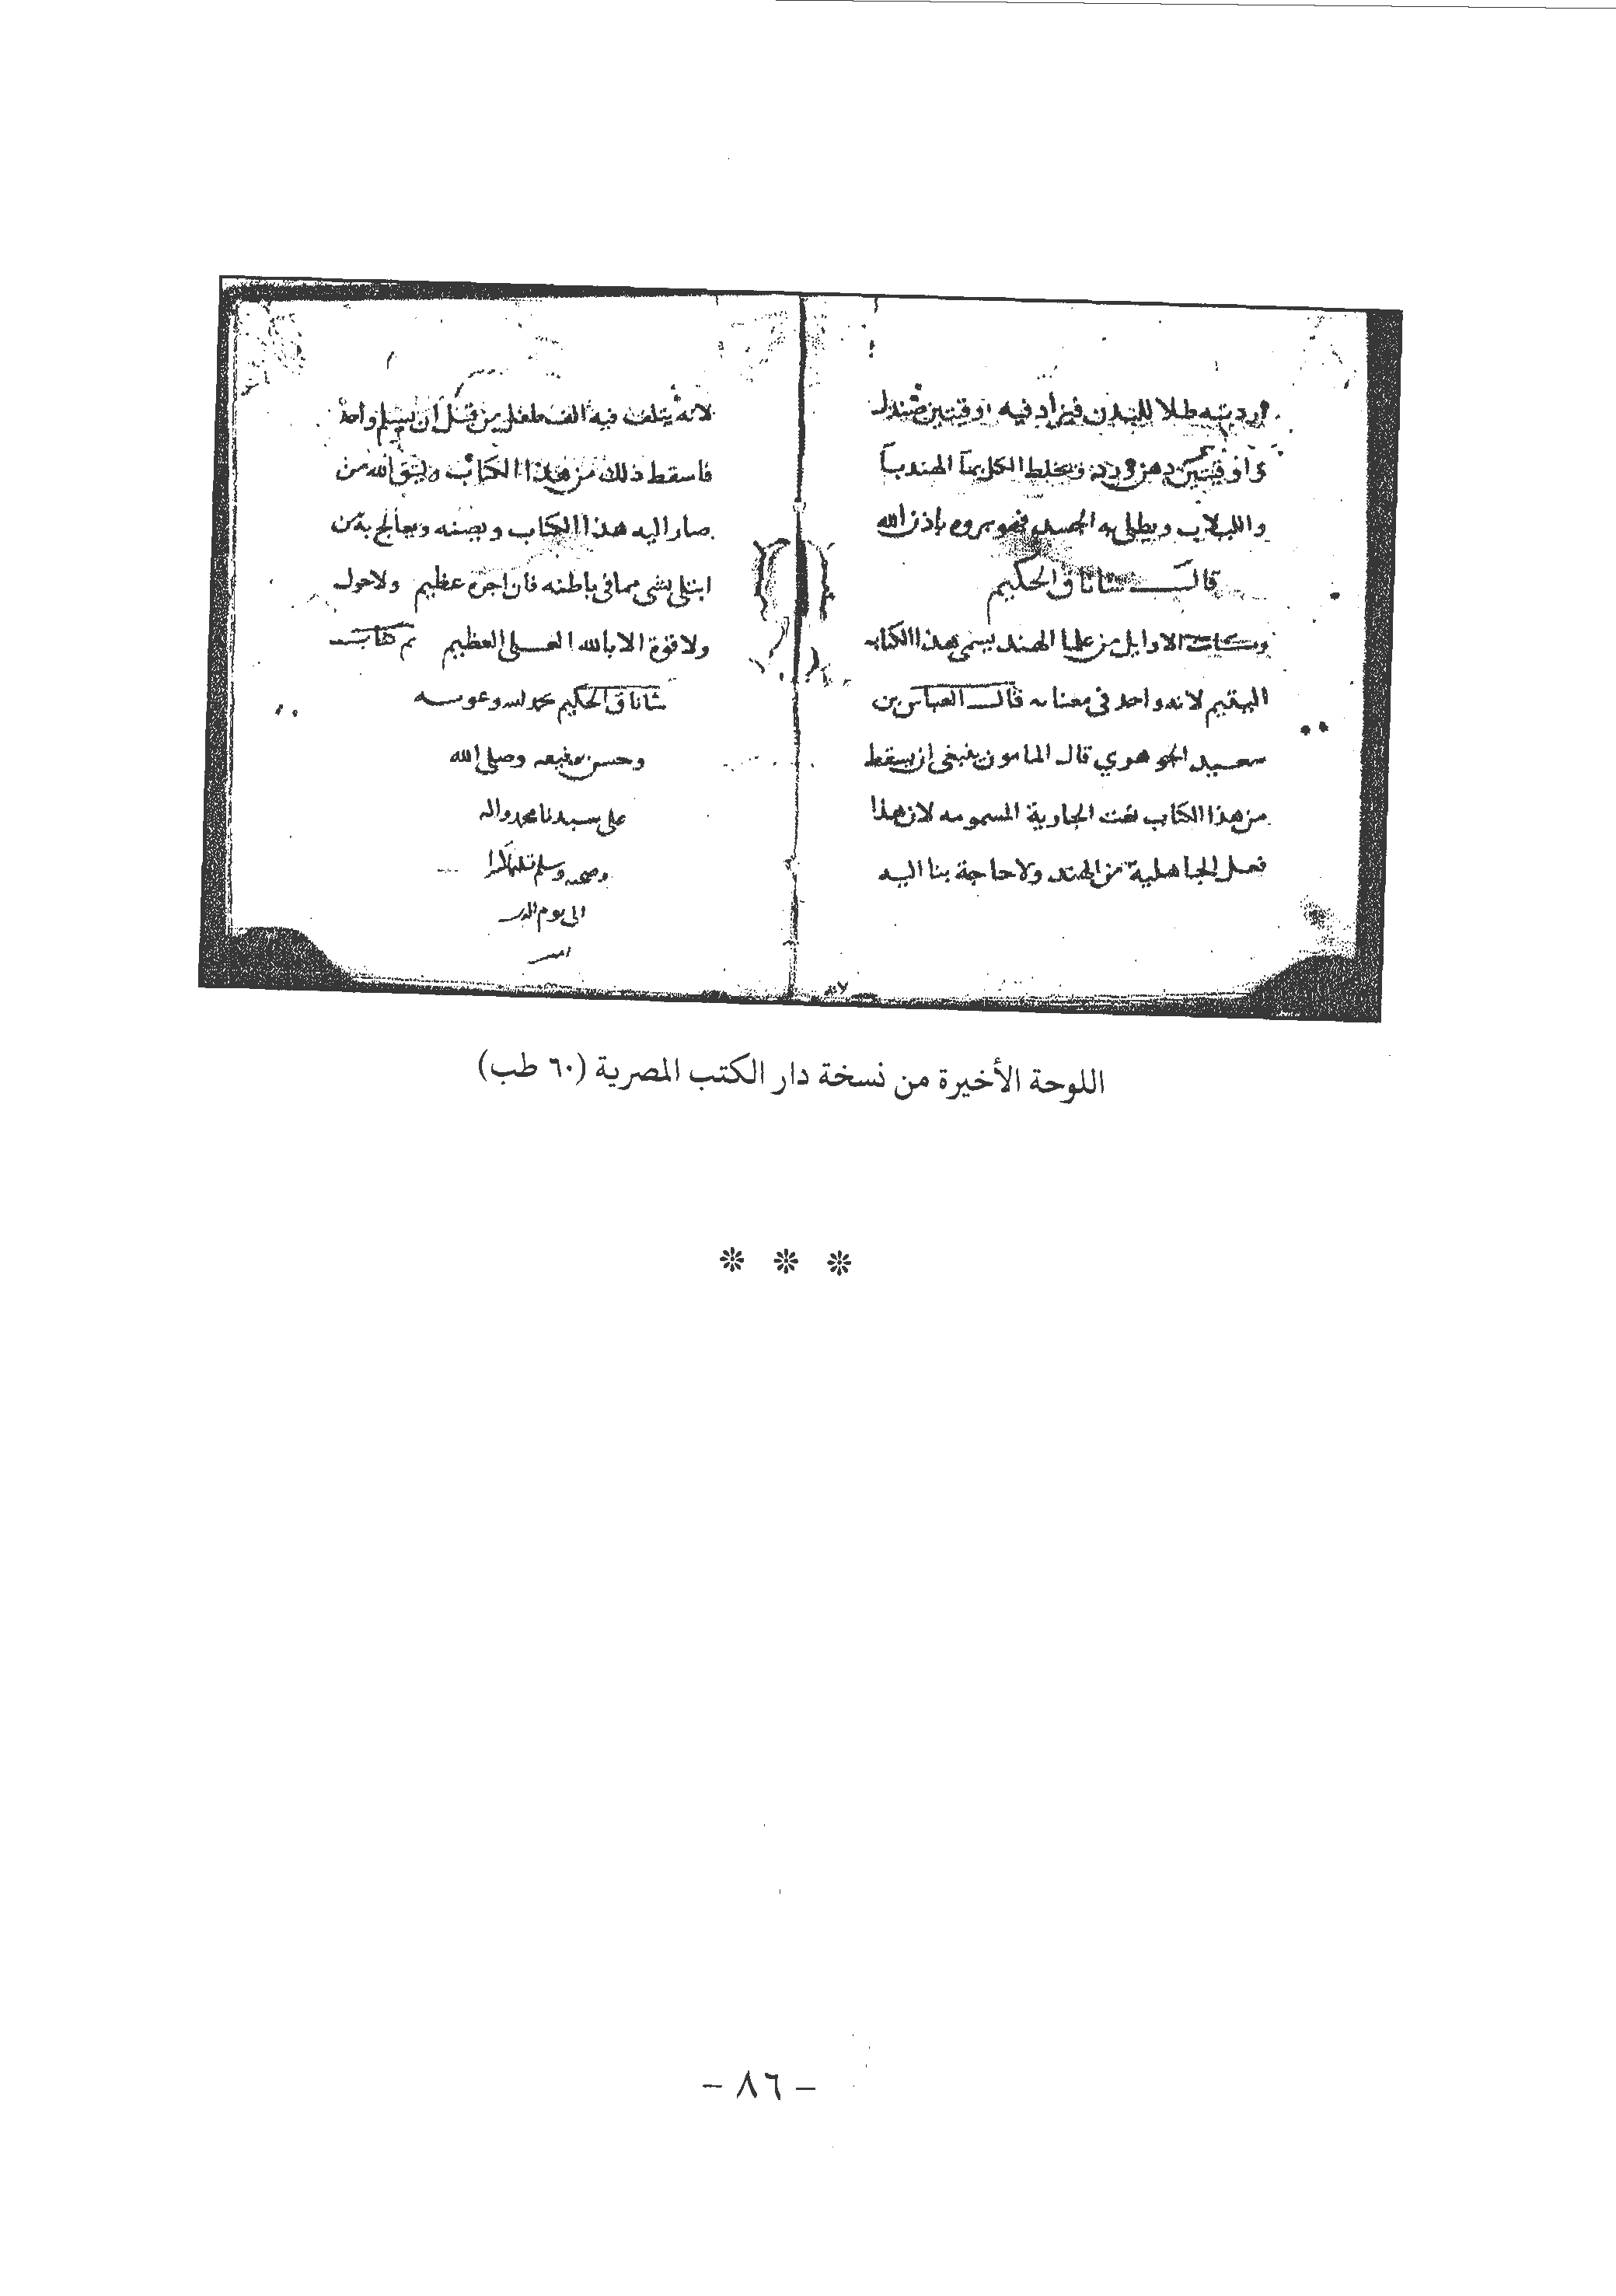 ورد بته طلا للبدن فيزاد فيه اوقتين صندل
واوقيتين دهن ورد ويخلط الكل بمآ الهندبآ
واللبلاب ويطلى به الجسد فهو بروه باذن الله
قالـــ شاناق الحكيم
وكانت الاوايل من علما الهند يسمى هذا الكتاب
اليتيم لانه واحد في معناه قالــ العباس بن
سعيد الجوهري قال المامون ينبغي ان يسقط
من هذا الكتاب نعت الجارية المسمومه لان هذا
فعل الجاهلية من الهند ولا حاجة بنا اليه
لانه
لانه يتلف فيه الف طفل من قبل ان يسلم واحد
فاسقط ذلك من هذا الكتاب وليتق الله من
صار اليه هذا الكتاب ويصنه ويعالج به من
ابتلي بشي مما في باطنه فان اجره عظيم ولا حول
ولا قوة الا بالله العلى العظيم تم كتابــ
شاناق الحكيم بحمد الله وعونــه
وحسن صنيعه وصلى الله
على سيدنا محمد واله
وصحبه وسلم تسليما كثيرا
الى يوم الدين
امين
اللوحة الأخيرة من نسخة دار الكتب المصرية (٦٠ طب)
* * *
- ٨٦ -